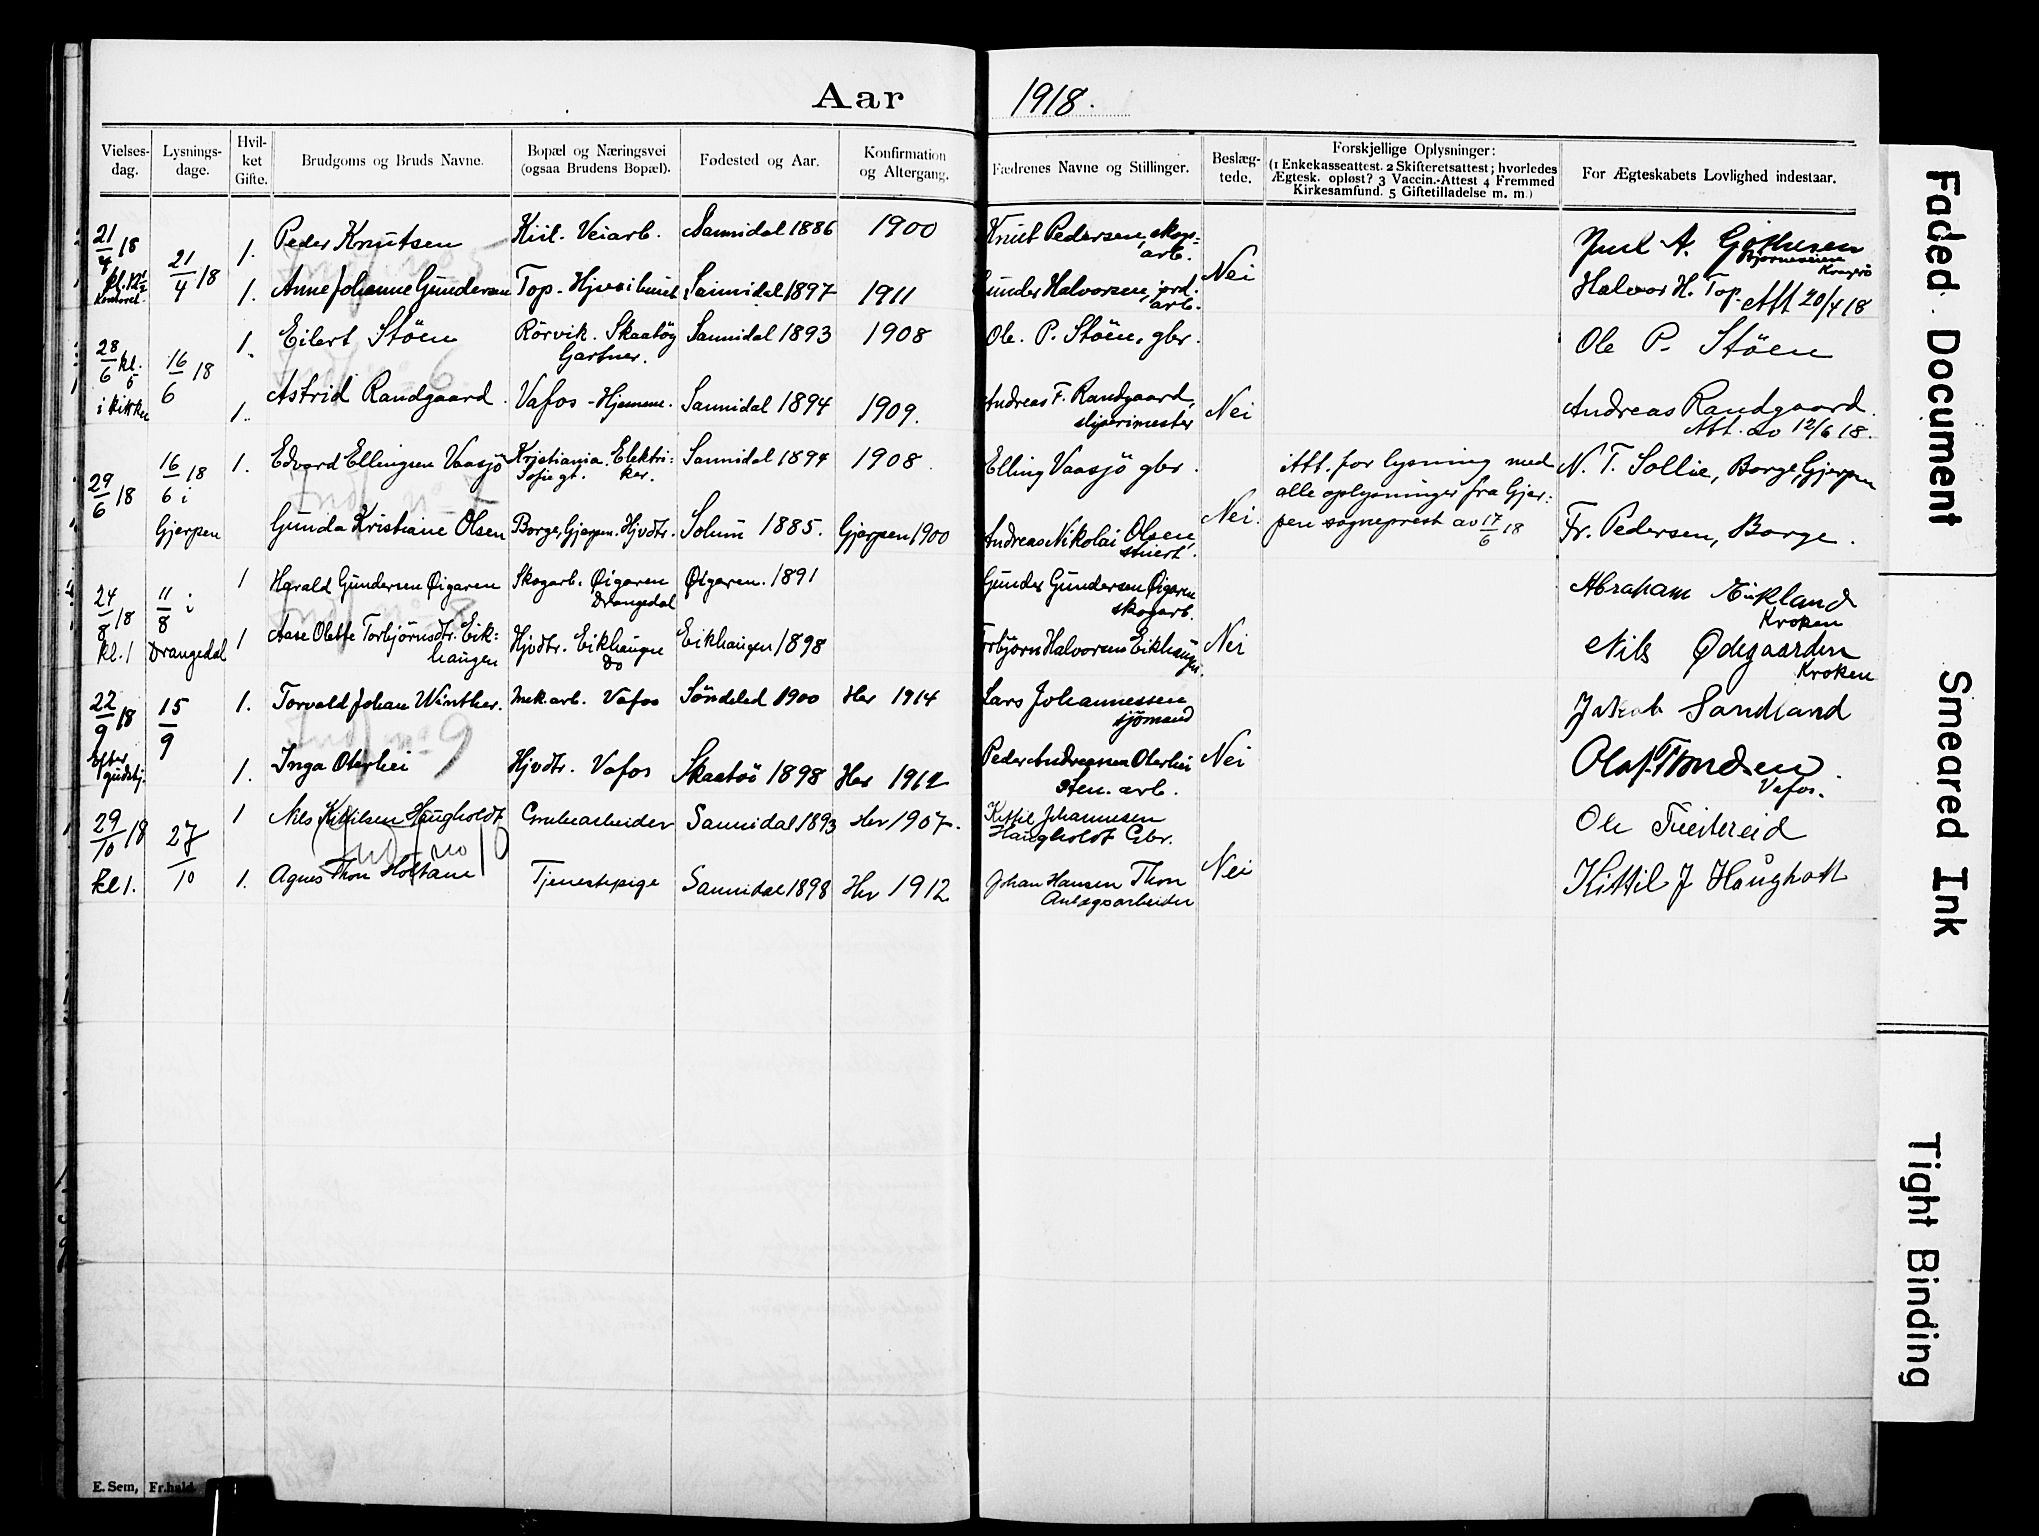 Aar 1918.
Vielses-dag. Lysnings-dage. Hvil-ket Gifte. Brudgoms og Bruds Navne. Bopæl og Næringsvei (ogsaa Brudens Bopæl). Fødested og Aar. Konfirmation og Altergang. Fædrenes Navne og Stillinger. Beslæg-tede. Forskjellige Oplysninger: (1 Enkekasseattest. 2 Skifteretsattest; hvorledes Ægtesk. opløst? 3 Vaccin.-Attest 4 Fremmed Kirkesamfund. 5 Giftetilladelse m. m.) For Ægteskabets Lovlighed indestaar.
21/4 18 21/4 18 1. Peder Knutsen Kiil. Veiarb. Sannidal 1886 1900 Knut Pedersen, skogs=arb. Nei
1. Anne Johanne Gundersen Top - Sannidal 1897 1911 Gunder Halvorsen, jord.arb. Halvor H. Top. Att 20/4 18
28/6 kl. 5 i kirken 16/6 18 1. Eilert Stöen Rörvik. Skaatöy Gartner. Sannidal 1893 1908 Ole. P. Stöen, gbr. Ole P. Stöen
1. Astrid Randgaard. Vafos - Hjemme. Sannidal 1894 1909. Andreas F. Randgaard, sliperimester Nei Andreas Randgaard. Att. av 12/6 18.
29/6 18 16/6 18 i Gjerpen 1. Edvard Ellingsen Vaasjö Kristiania. Elektri=ker. Sofiegt. Sannidal 1894 1908. Elling Vaasjö gbr. Att. for lysning med N. T. Sollie, Borge, Gjerpen
alle oplysninger fra Gjer=
Gunda Kristiane Olsen Borge, Gjerpen. Hjvdtr. Solum 1885. Gjerpen 1900 Andreas Nikolai Olsen, stuert. Nei. pen sogneprest av 17/6 18 Fr. Pedersen, Borge.
24/8 18 kl. 1 11/8 i Drangedal 1 Harald Gundersen Øigaren Skogarb. Øigaren Drangedal Øigaren. 1891 Gunder Gundersen Øigaren skogarb. Abraham Kroken
1 Aase Olette Torbjörnsdtr. Eik=haugen Hjvdtr. Eikhaugen Do Eikhaugen 1898 Torbjörn Halvorsen Eikhaugen. Nei Nils Ødegaarden Kroken
22/9 18 Efter gudstj. 15/9 1. Torvald Johan Winther. Mek.arb. Vafos Söndeled 1900 Her 1914 Lars Johannessen sjömand Jakob Sandland
Ind no 9
1. Inga Oterhei Hjvdtr. Vafos Skaatöö 1898 Her 1912 Peder Andreassen Oterhei Sten. arb. Nei Olaf Vafos.
29/10 18 kl 1. 27/10 1 Nils Kittilsen Haugholdt Grubearbeider Sannidal 1893 Her 1907. Kittil Johannesen Haugholdt Gbr. Ole
Ind no 10
1. Agnes Thon Holtane Tjenestepige Sannidal 1898 Her 1912 Johan Hansen Thon Anlægsarbeider Nei Kittil J Haugholt
E. Sem, Fr.hald.
Faded Document
Smeared Ink
Tight Binding